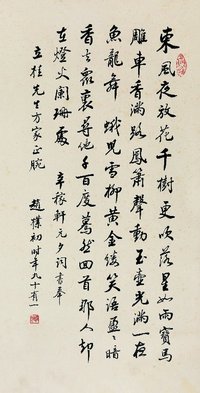 東風夜放花千樹更吹落星如雨寶馬
雕車香滿路鳳簫聲動玉壺光轉一夜
魚龍舞 蛾兒雪柳黃金縷笑語盈〻暗
香去衆裏尋他千百度驀然回首那人却
在燈火闌珊處 辛稼軒元夕詞書奉
立柱先生方家正腕
趙樸初時年九十有一